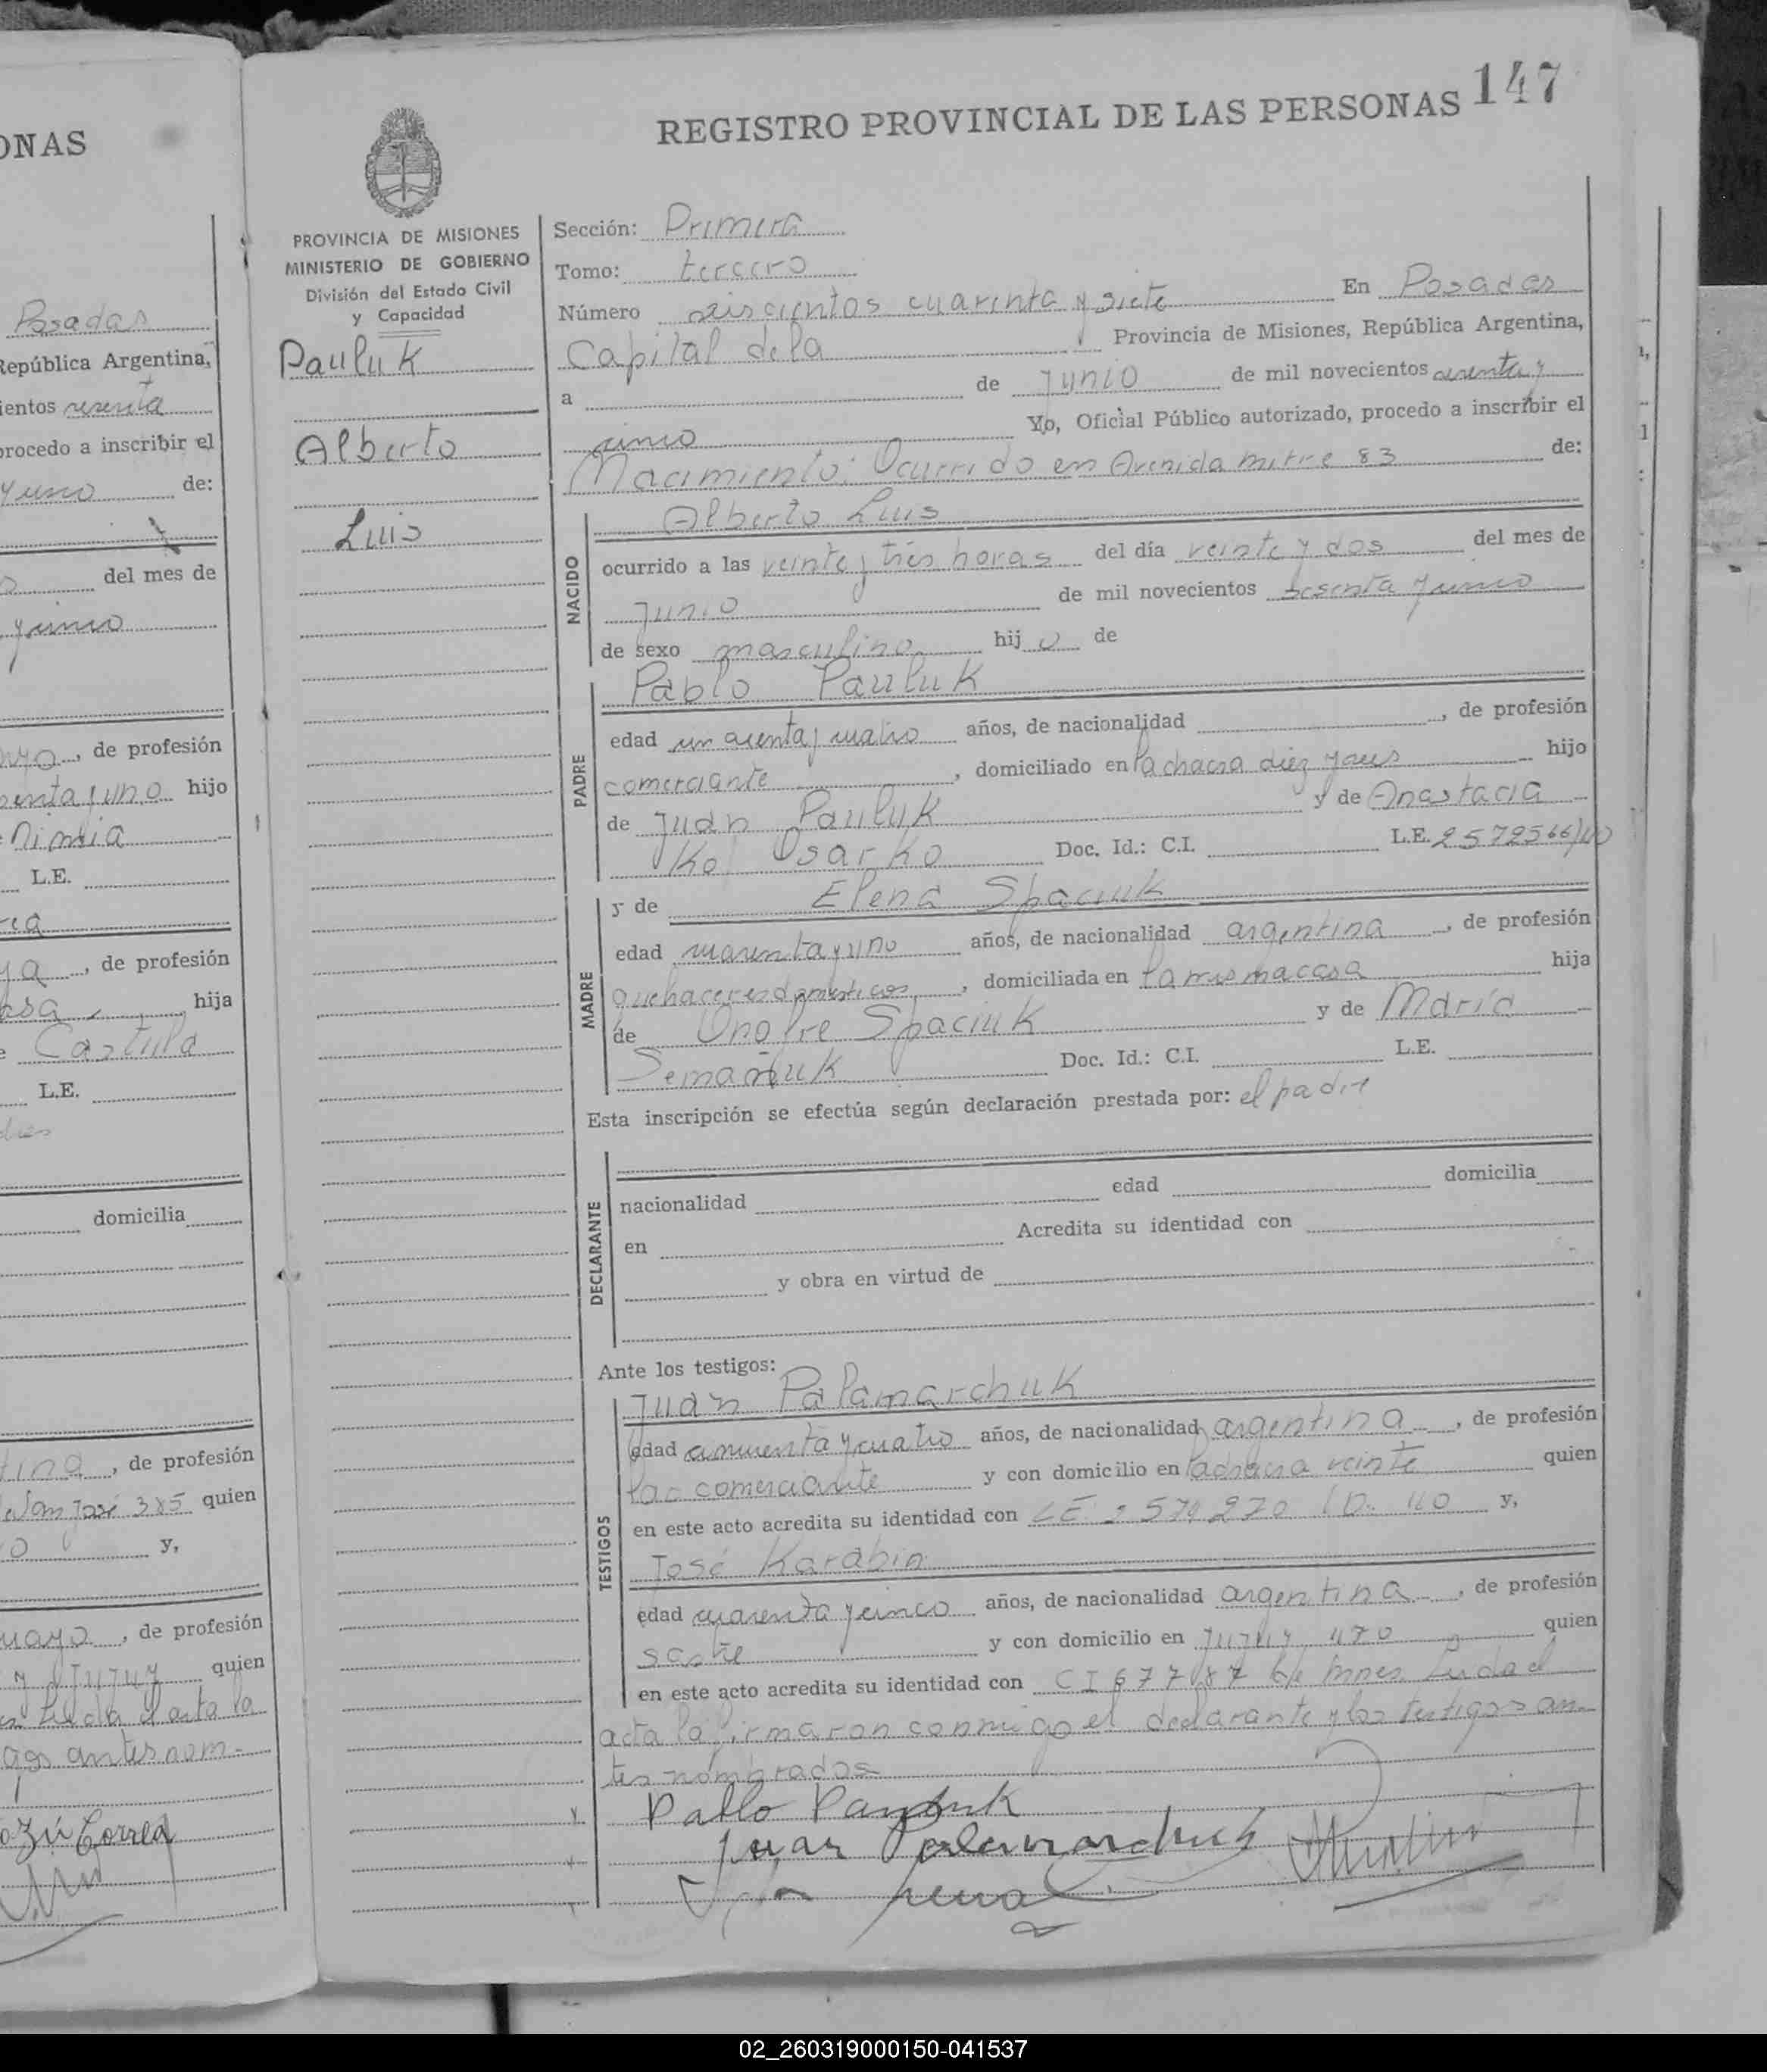 ONAS
Posadas
República Argentina,
ientos
procedo a inscribir el
y uno de:
del mes de
, de profesión
y uno hijo
L.E.
, de profesión
hija
L.E.
domicilia
, de profesión
José 385 quien
y,
, de profesión
quien
antes nom-
Correa
147
REGISTRO PROVINCIAL DE LAS PERSONAS
PROVINCIA DE MISIONES
MINISTERIO DE GOBIERNO
División del Estado Civil
y Capacidad
Pauluk
Alberto
Luis
Sección: Primera
Tomo: tercero
Número seiscientos cuarenta y siete En Posadas
Capital de la Provincia de Misiones, República Argentina,
a de Junio de mil novecientos sesenta y
uno Yo, Oficial Público autorizado, procedo a inscribir el
Nacimiento: Ocurrido en Avenida Mitre 83 de:
NACIDO
Alberto Luis
ocurrido a las veinte y tres horas del día veinte y dos del mes de
Junio de mil novecientos sesenta y uno
de sexo masculino hijo de
PADRE
Pablo Pauluk
edad cuarenta y cuatro años, de nacionalidad , de profesión
comerciante , domiciliado en la chacra diez y hijo
de Juan Pauluk y de Anastacia
Kol Osarko Doc. Id.: C.I. L.E. 2572566
MADRE
y de Elena Spaciuk
edad cuarenta y uno años, de nacionalidad argentina , de profesión
quehaceres domésticos , domiciliada en la misma casa hija
de Onofre Spaciuk y de María
Semañuk Doc. Id.: C.I. L.E.
Esta inscripción se efectúa según declaración prestada por: el padre
DECLARANTE
nacionalidad edad domicilia
en Acredita su identidad con
y obra en virtud de
Ante los testigos:
TESTIGOS
Juan Palamarchuk
edad cincuenta y cuatro años, de nacionalidad argentina , de profesión
comerciante y con domicilio en la chacra veinte quien
en este acto acredita su identidad con y,
José Karabin
edad cuarenta y cinco años, de nacionalidad argentina , de profesión
sastre y con domicilio en Jujuy 470 quien
en este acto acredita su identidad con CI Leida el
acta la firmaron conmigo el declarante y los testigos an-
tes nombrados
Pablo Pauluk
Juan Palamarchuk
02_260319000150-041537